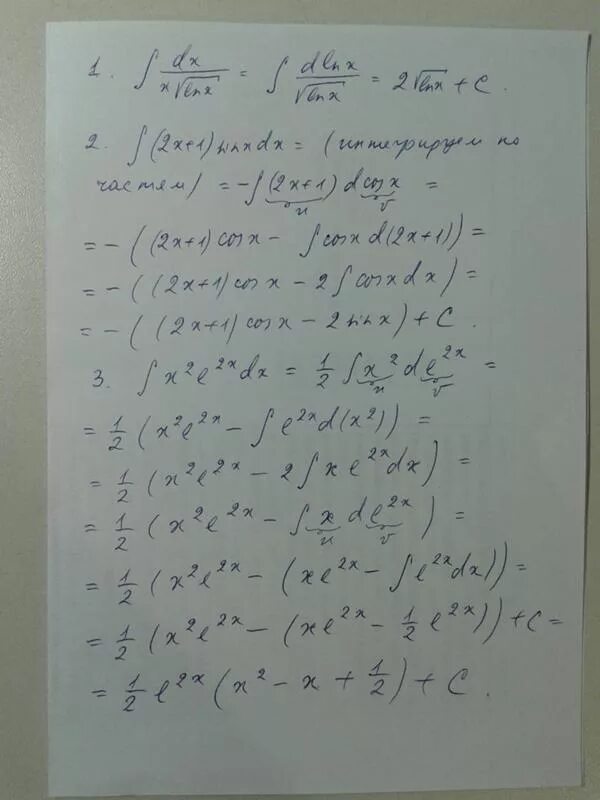 1. ∫ dx/(x√(ln x)) = ∫ d ln x/√(ln x) = 2√(ln x) + C.
2. ∫(2x+1) sin x dx = (интегрируем по
частям) = -∫(2x+1) d cos x =
u v
= -((2x+1) cos x - ∫cos x d(2x+1)) =
= -((2x+1) cos x - 2∫cos x dx) =
= -((2x+1) cos x - 2 sin x) + C.
3. ∫x²e^(2x)dx = 1/2 ∫x² de^(2x) =
u v
= 1/2 (x²e^(2x) - ∫e^(2x)d(x²)) =
= 1/2 (x²e^(2x) - 2∫xe^(2x)dx) =
= 1/2 (x²e^(2x) - ∫x de^(2x)) =
u v
= 1/2 (x²e^(2x) - (xe^(2x) - ∫e^(2x)dx)) =
= 1/2 (x²e^(2x) - (xe^(2x) - 1/2 e^(2x))) + C =
= 1/2 e^(2x) (x² - x + 1/2) + C.